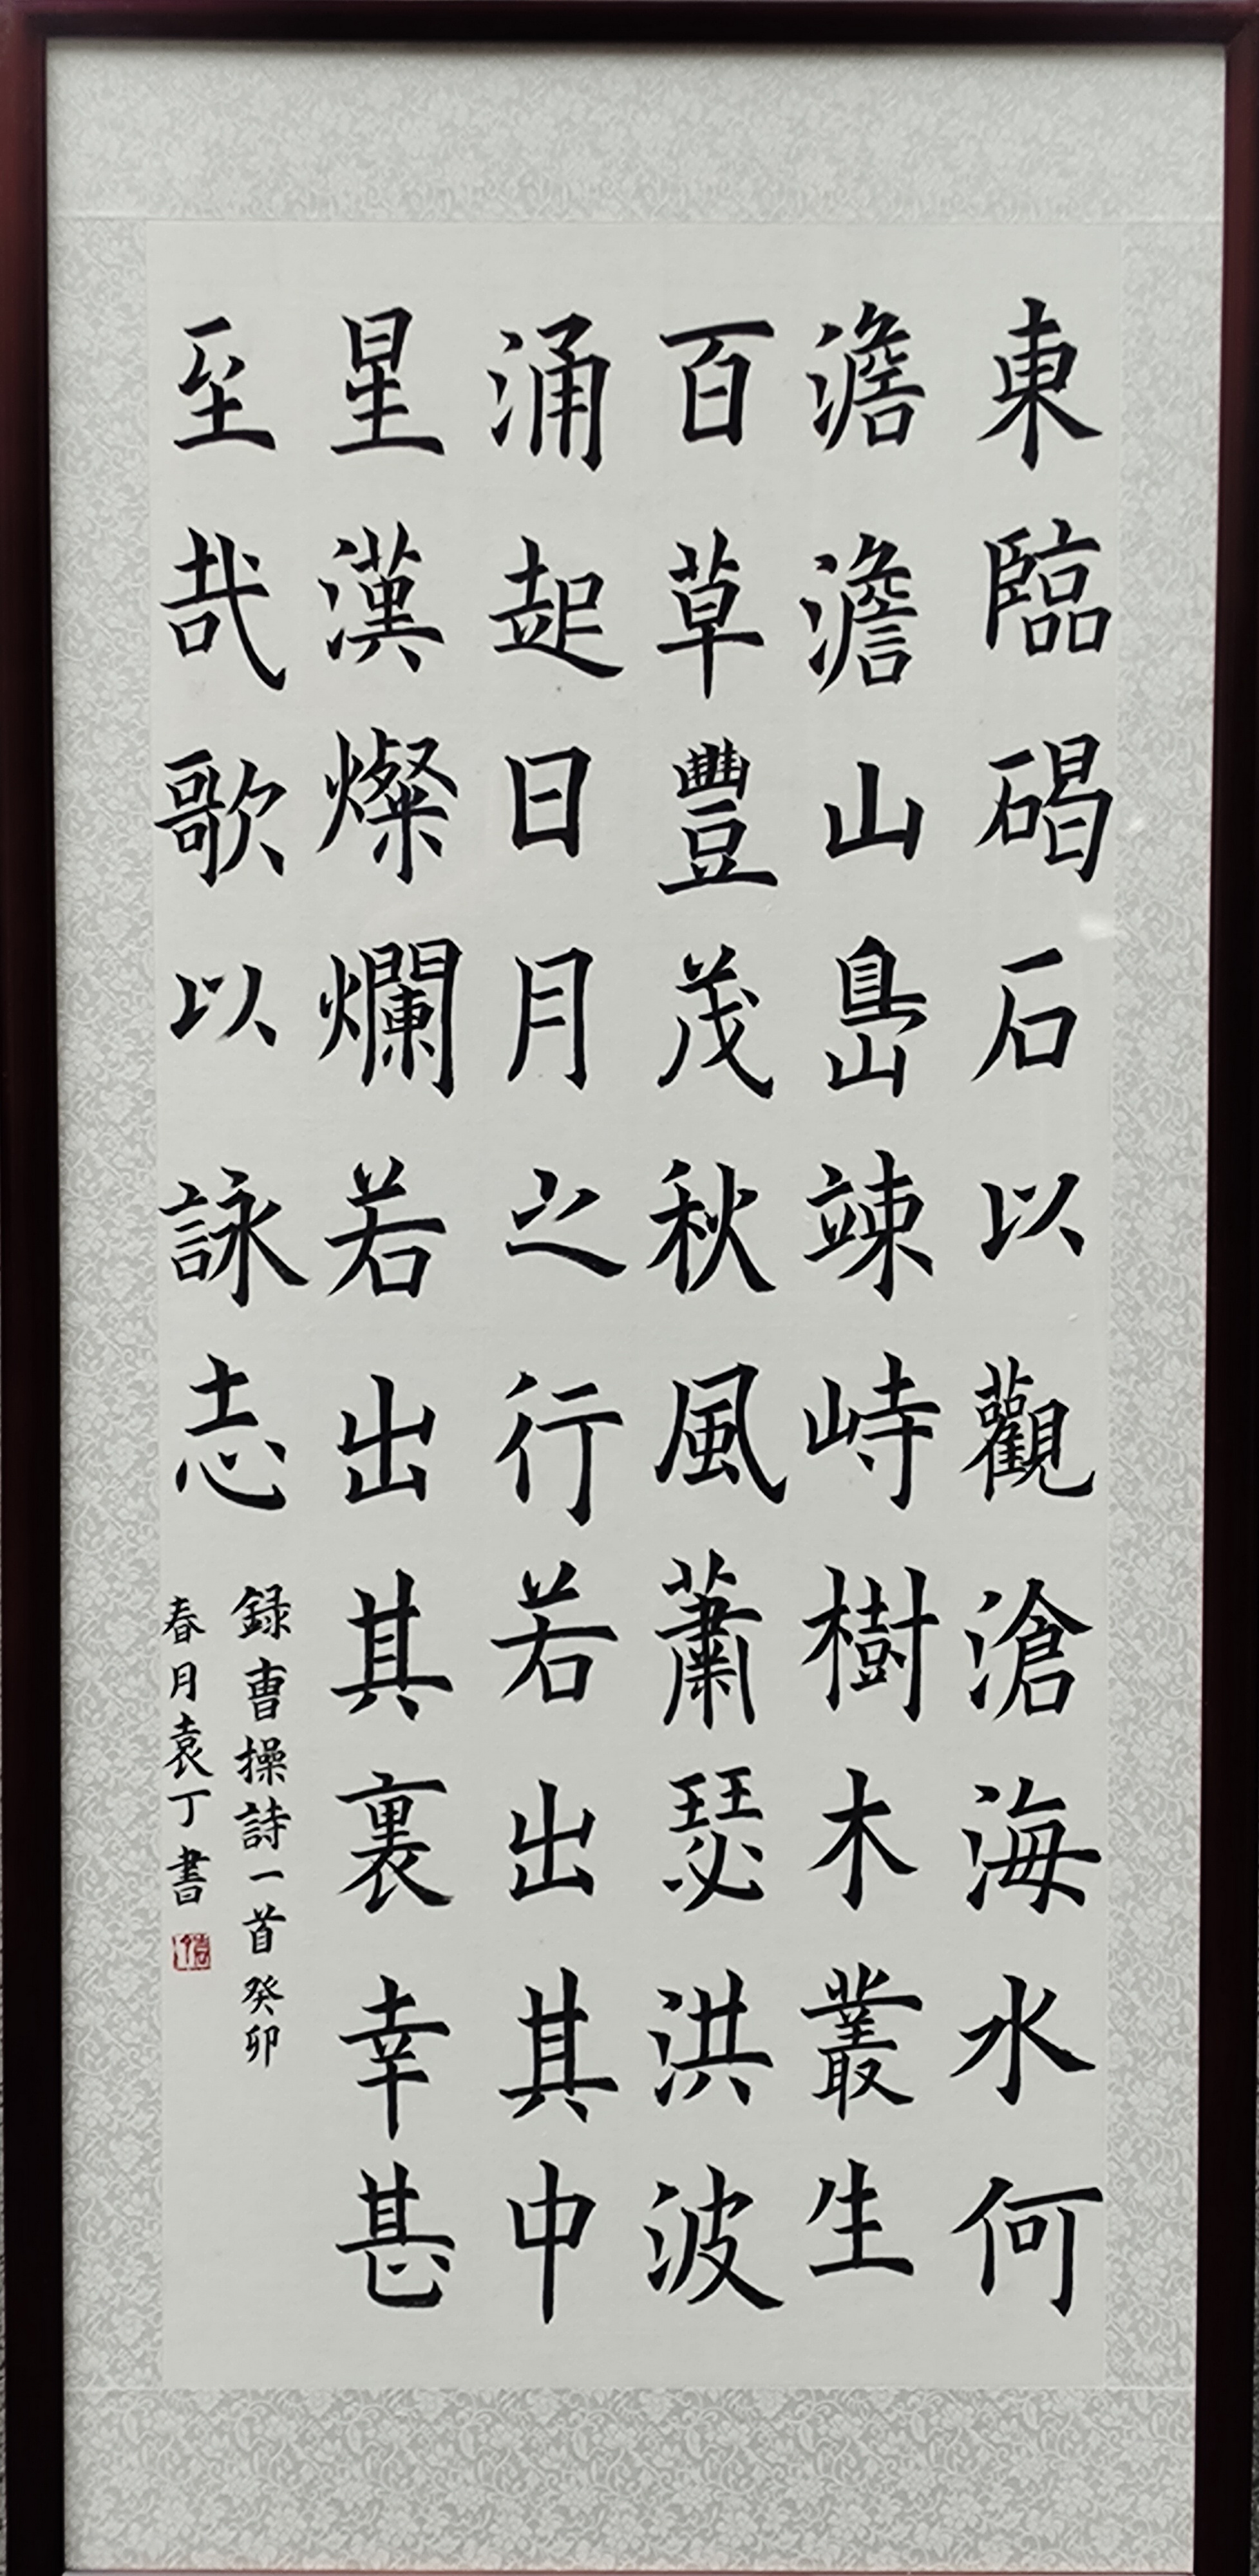 東臨碣石以觀滄海水何
澹澹山島竦峙樹木叢生
百草豐茂秋風蕭瑟洪波
涌起日月之行若出其中
星漢燦爛若出其裏幸甚
至哉歌以詠志
録曹操詩一首癸卯
春月袁丁書